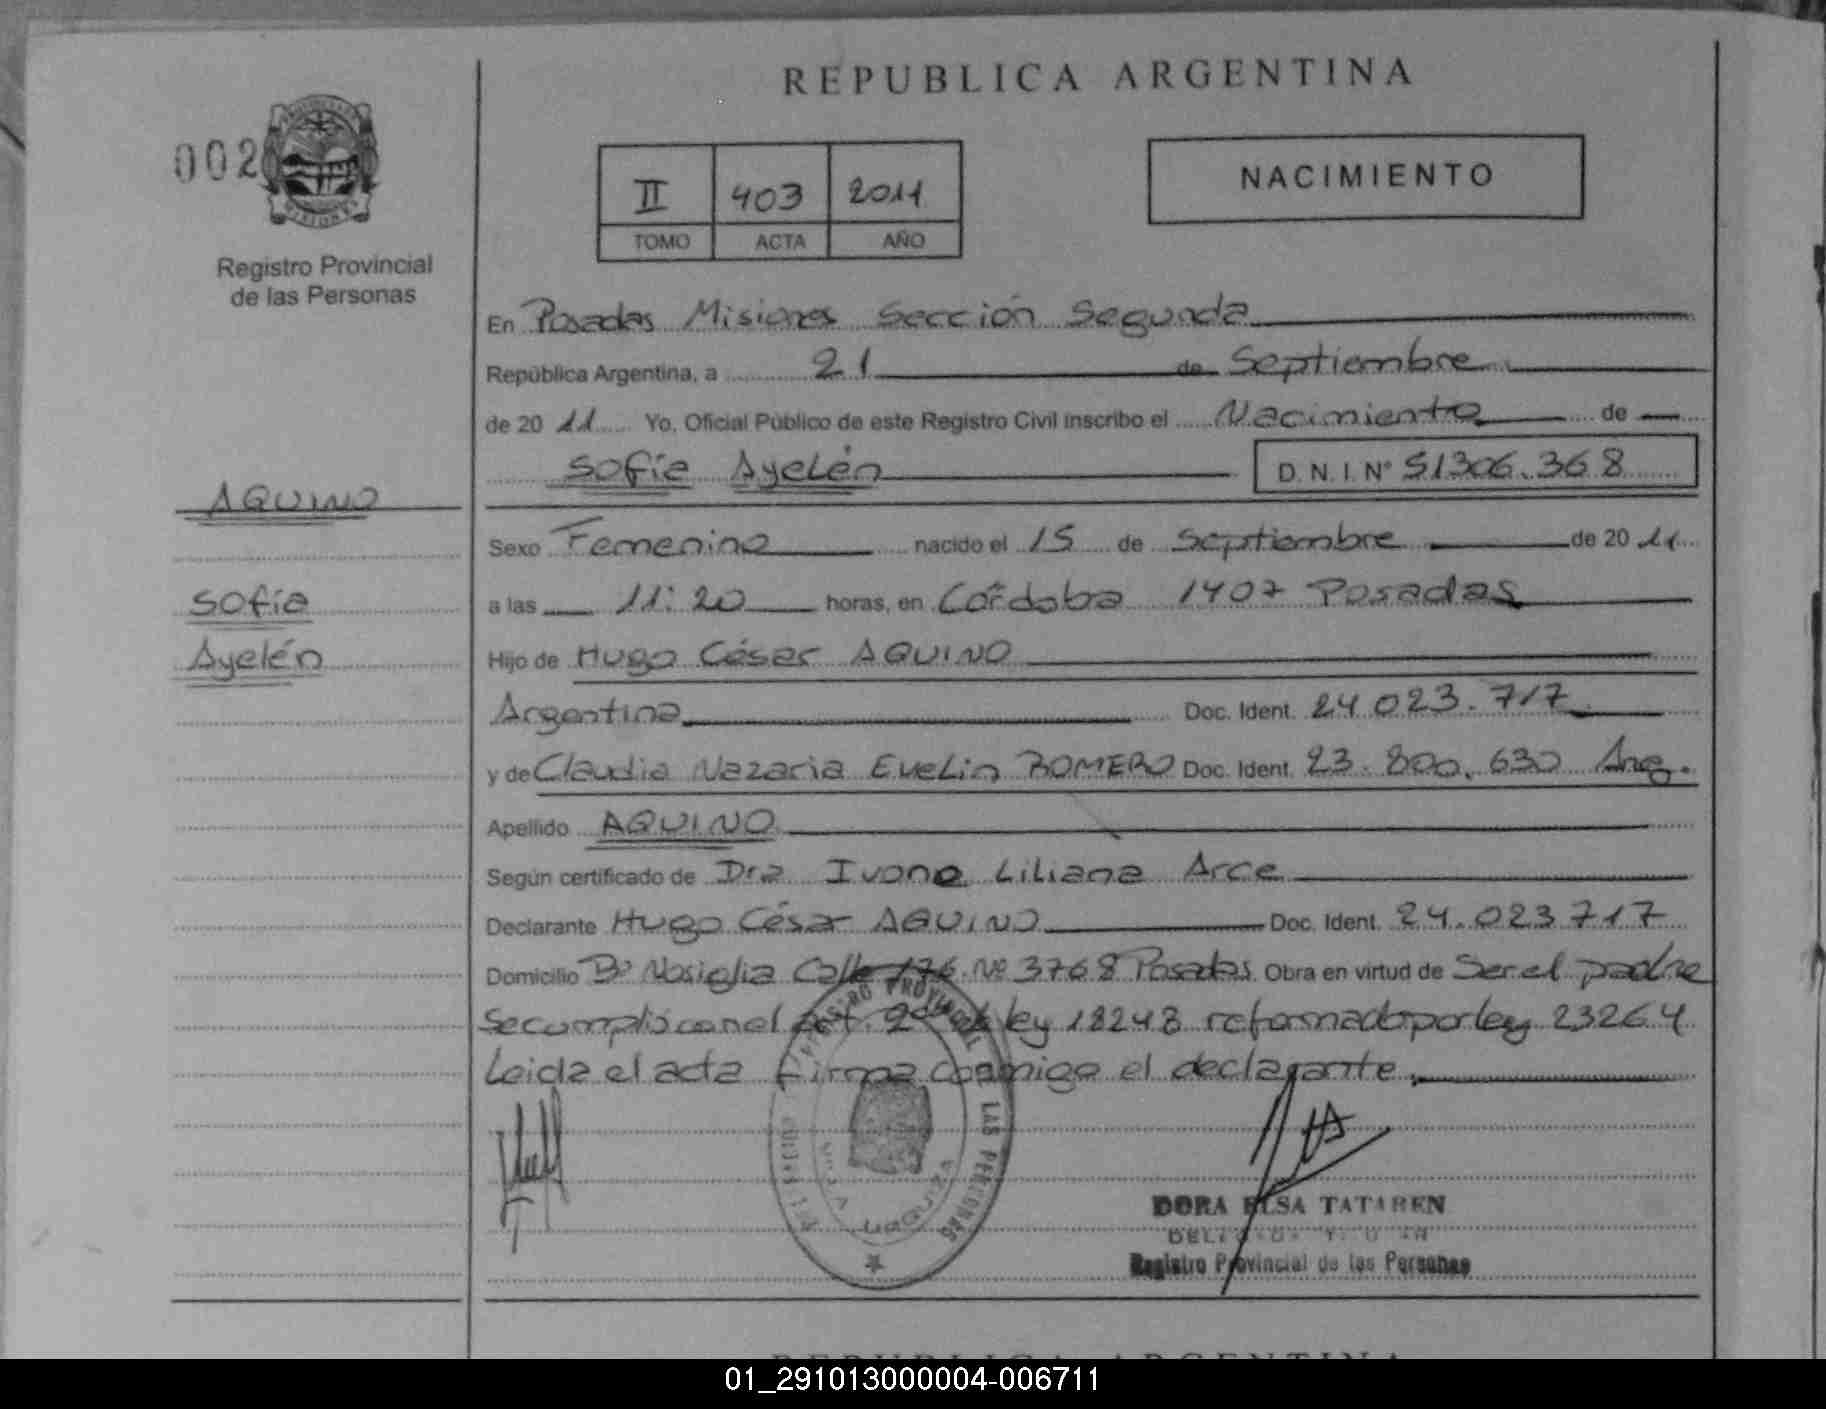 REPUBLICA ARGENTINA
002
NACIMIENTO
II 403 2011
TOMO ACTA AÑO
Registro Provincial
de las Personas
En Posadas Misiones Sección Segunda
República Argentina, a 21 de Septiembre
de 20 11 Yo, Oficial Público de este Registro Civil inscribo el Nacimiento de
Sofía Ayelén D.N.I. Nº 51306.368
AQUINO
Sofía
Ayelén
Sexo Femenino nacido el 15 de Septiembre de 20 11
a las 11:20 horas, en Córdoba 1407 Posadas
Hijo de Hugo César AQUINO
Argentina Doc. Ident. 24.023.717
y de Claudia Nazaria Evelin ROMERO Doc. Ident. 23.800.630 Arg.
Apellido AQUINO
Según certificado de Dra Ivone Liliana Arce
Declarante Hugo César AQUINO Doc. Ident. 24.023717
Domicilio Bº Nosiglia Calle 176 Nº 3768 Posadas Obra en virtud de Ser el padre
Se cumplió con el Art. 2º de ley 18248 reformado por ley 23264
Leida el acta firma conmigo el declarante.
REGISTRO PROVINCIAL DE LAS PERSONAS
URQUIZA
DORA ELSA TATAREN
Registro Provincial de las Personas
REPUBLICA ARGENTINA
01_291013000004-006711